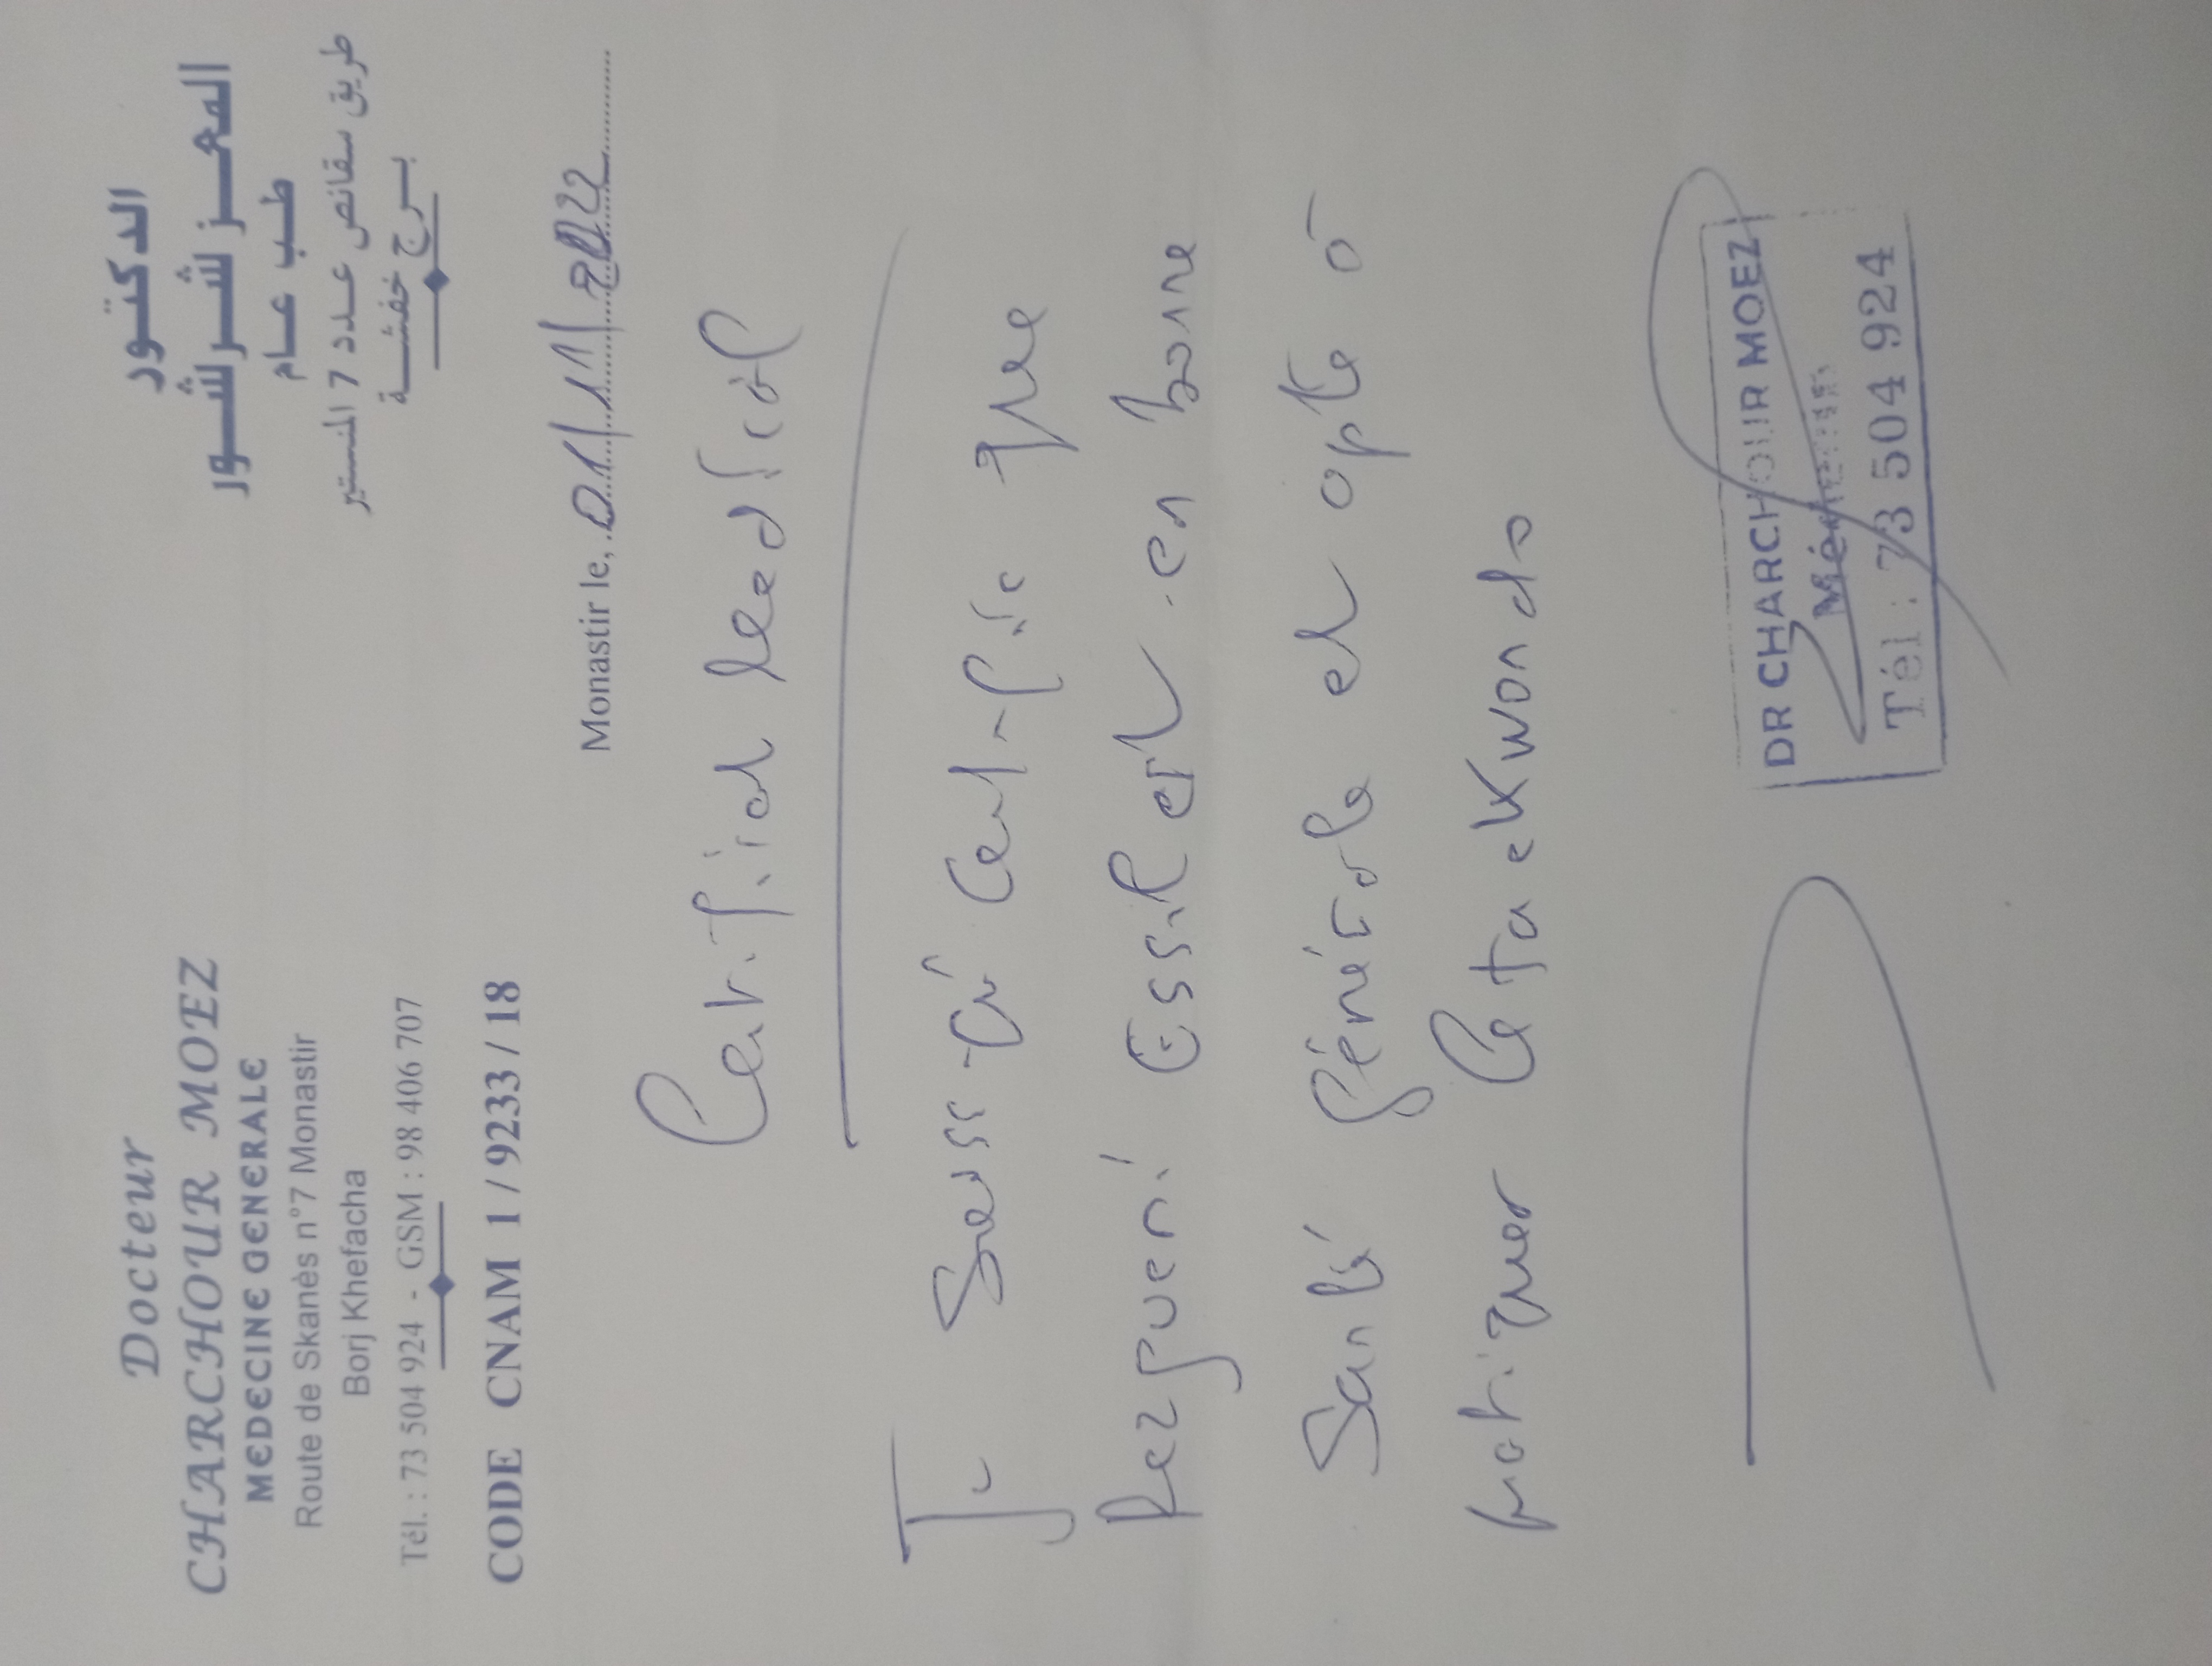 Docteur
CHARCHOUR MOEZ
MEDECINE GENERALE
Route de Skanès n°7 Monastir
Borj Khefacha
Tél. : 73 504 924 - GSM : 98 406 707
CODE CNAM 1 / 9233 / 18
الدكتور
المعز شرشور
طب عام
طريق سقانص عدد 7 المنستير
برج خفشة
Monastir le, 01/11/2022
Certificat Medical
Je Soussigné Certifie que
Rezgueni Essil est en bonne
Santé générale et apte à
pratiquer le taekwondo
DR CHARCHOUR MOEZ
Tél : 73 504 924